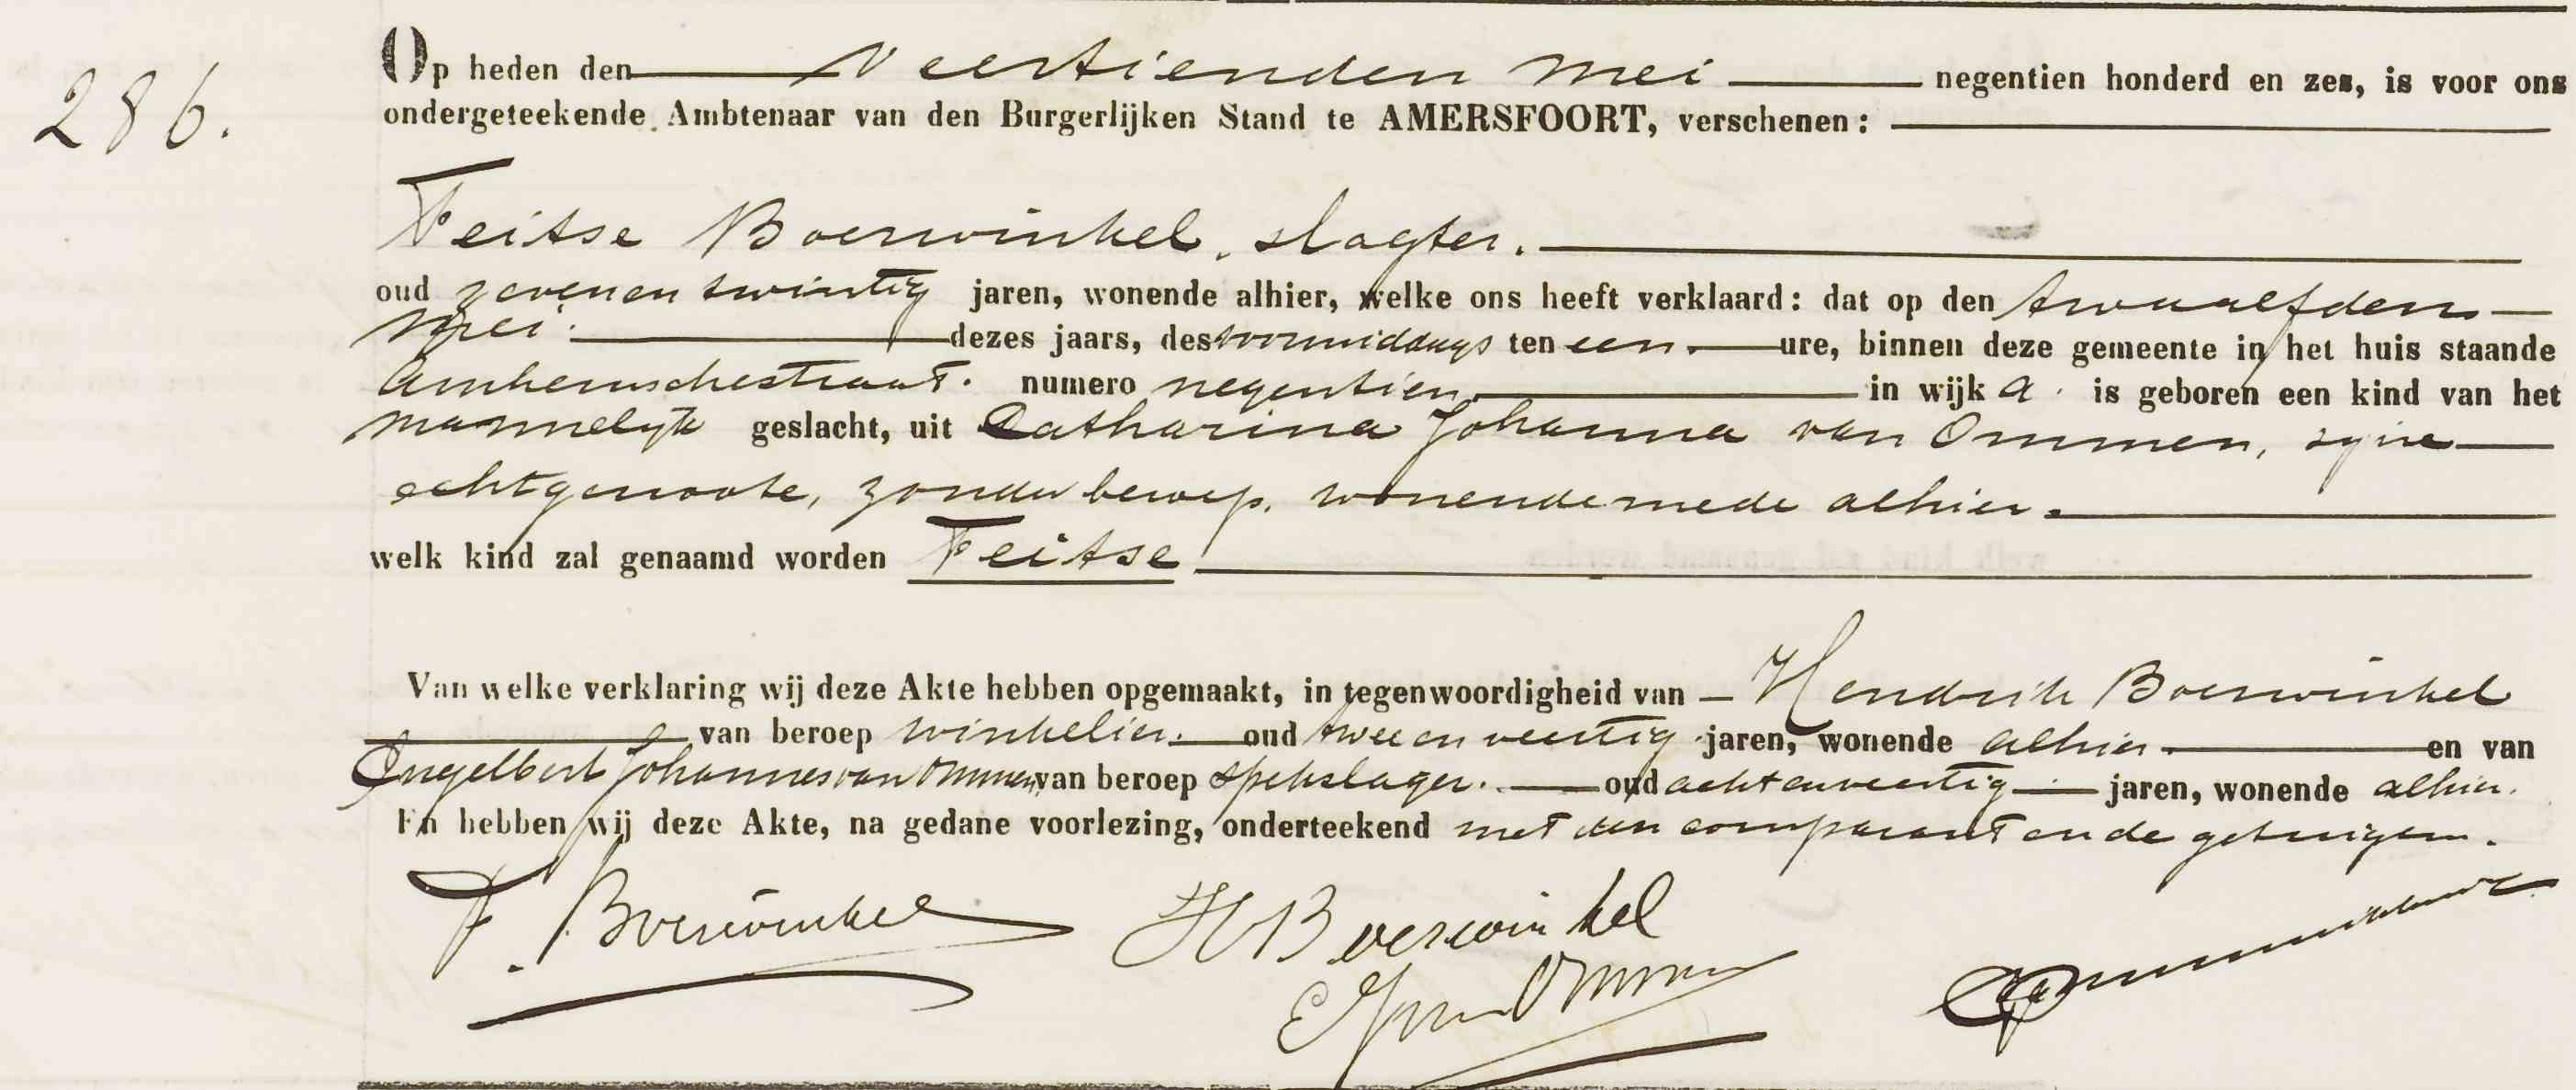 286.
Op heden den veertienden mei negentien honderd en zes, is voor ons
ondergeteekende Ambtenaar van den Burgerlijken Stand te AMERSFOORT, verschenen:
Feitse Boerwinkel, slagter.
oud zevenentwintig jaren, wonende alhier, welke ons heeft verklaard: dat op den twaalfden
mei dezes jaars, des voormiddags ten een ure, binnen deze gemeente in het huis staande
Arnhemschestraat. numero negentien in wijk A. is geboren een kind van het
mannelijk geslacht, uit Catharina Johanna van Ommen, zijne
echtgenoote, zonder beroep, wonende mede alhier.
welk kind zal genaamd worden Feitse
Van welke verklaring wij deze Akte hebben opgemaakt, in tegenwoordigheid van Hendrik Boerwinkel
van beroep winkelier. oud tweeenveertig jaren, wonende alhier en van
Engelbert Johannes van Ommen van beroep spekslager. oud achtenveertig jaren, wonende alhier.
En hebben wij deze Akte, na gedane voorlezing, onderteekend met den comparant en de getuigen.
F. Boerwinkel HBoerwinkel
EJvanOmmen